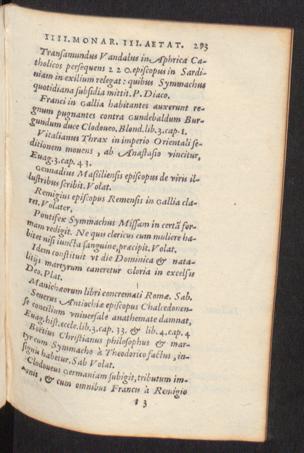 IIII. MONAR. III. AETAT. 293
Transamundus Vandalus in Aphrica Ca-
tholicos persequens 220. episcopus in Sardi-
niam in exilium relegat: quibus Symmachus
quotidiana subsidia mittit. P. Diaco.
Franci in Gallia habitantes auxerunt re-
gnum pugnantes contra Gundebaldum Bur-
gundum duce Clodoueo. Blond. lib. 3. cap. 1.
Vitalianus Thrax in imperio Orientali se-
ditionem mouens, ab Anastasio vincitur,
Euag. 3. cap. 43.
Gennadius Massiliensis episcopus de viris il-
lustribus scribit. Volat.
Remigius episcopus Remensis in Gallia cla-
ret. Volater.
Pontifex Symmachus Missam in certã for-
mam redigit. Ne quis clericus cum muliere ha-
bitet nisi iuncta sanguine, præcipit. Volat.
Idem constituit vt die Dominica & nata-
litijs martyrum caneretur Gloria in excelsis
Deo. Plat.
Manichæorum libri concremati Romæ. Sab.
Seuerus Antiochiæ episcopus Chalcedonen-
se concilium vniuersale anathemate damnat,
Euag. hist. eccle. lib. 3. cap. 33. & lib. 4. cap. 4
Boëtius Christianus philosophus & mar-
tyr cum Symmacho à Theodorico factus, in-
signis habetur. Sab Volat.
Clodoueus Germaniam subigit, tributum im-
& cum omnibus Francis à Remigio
3